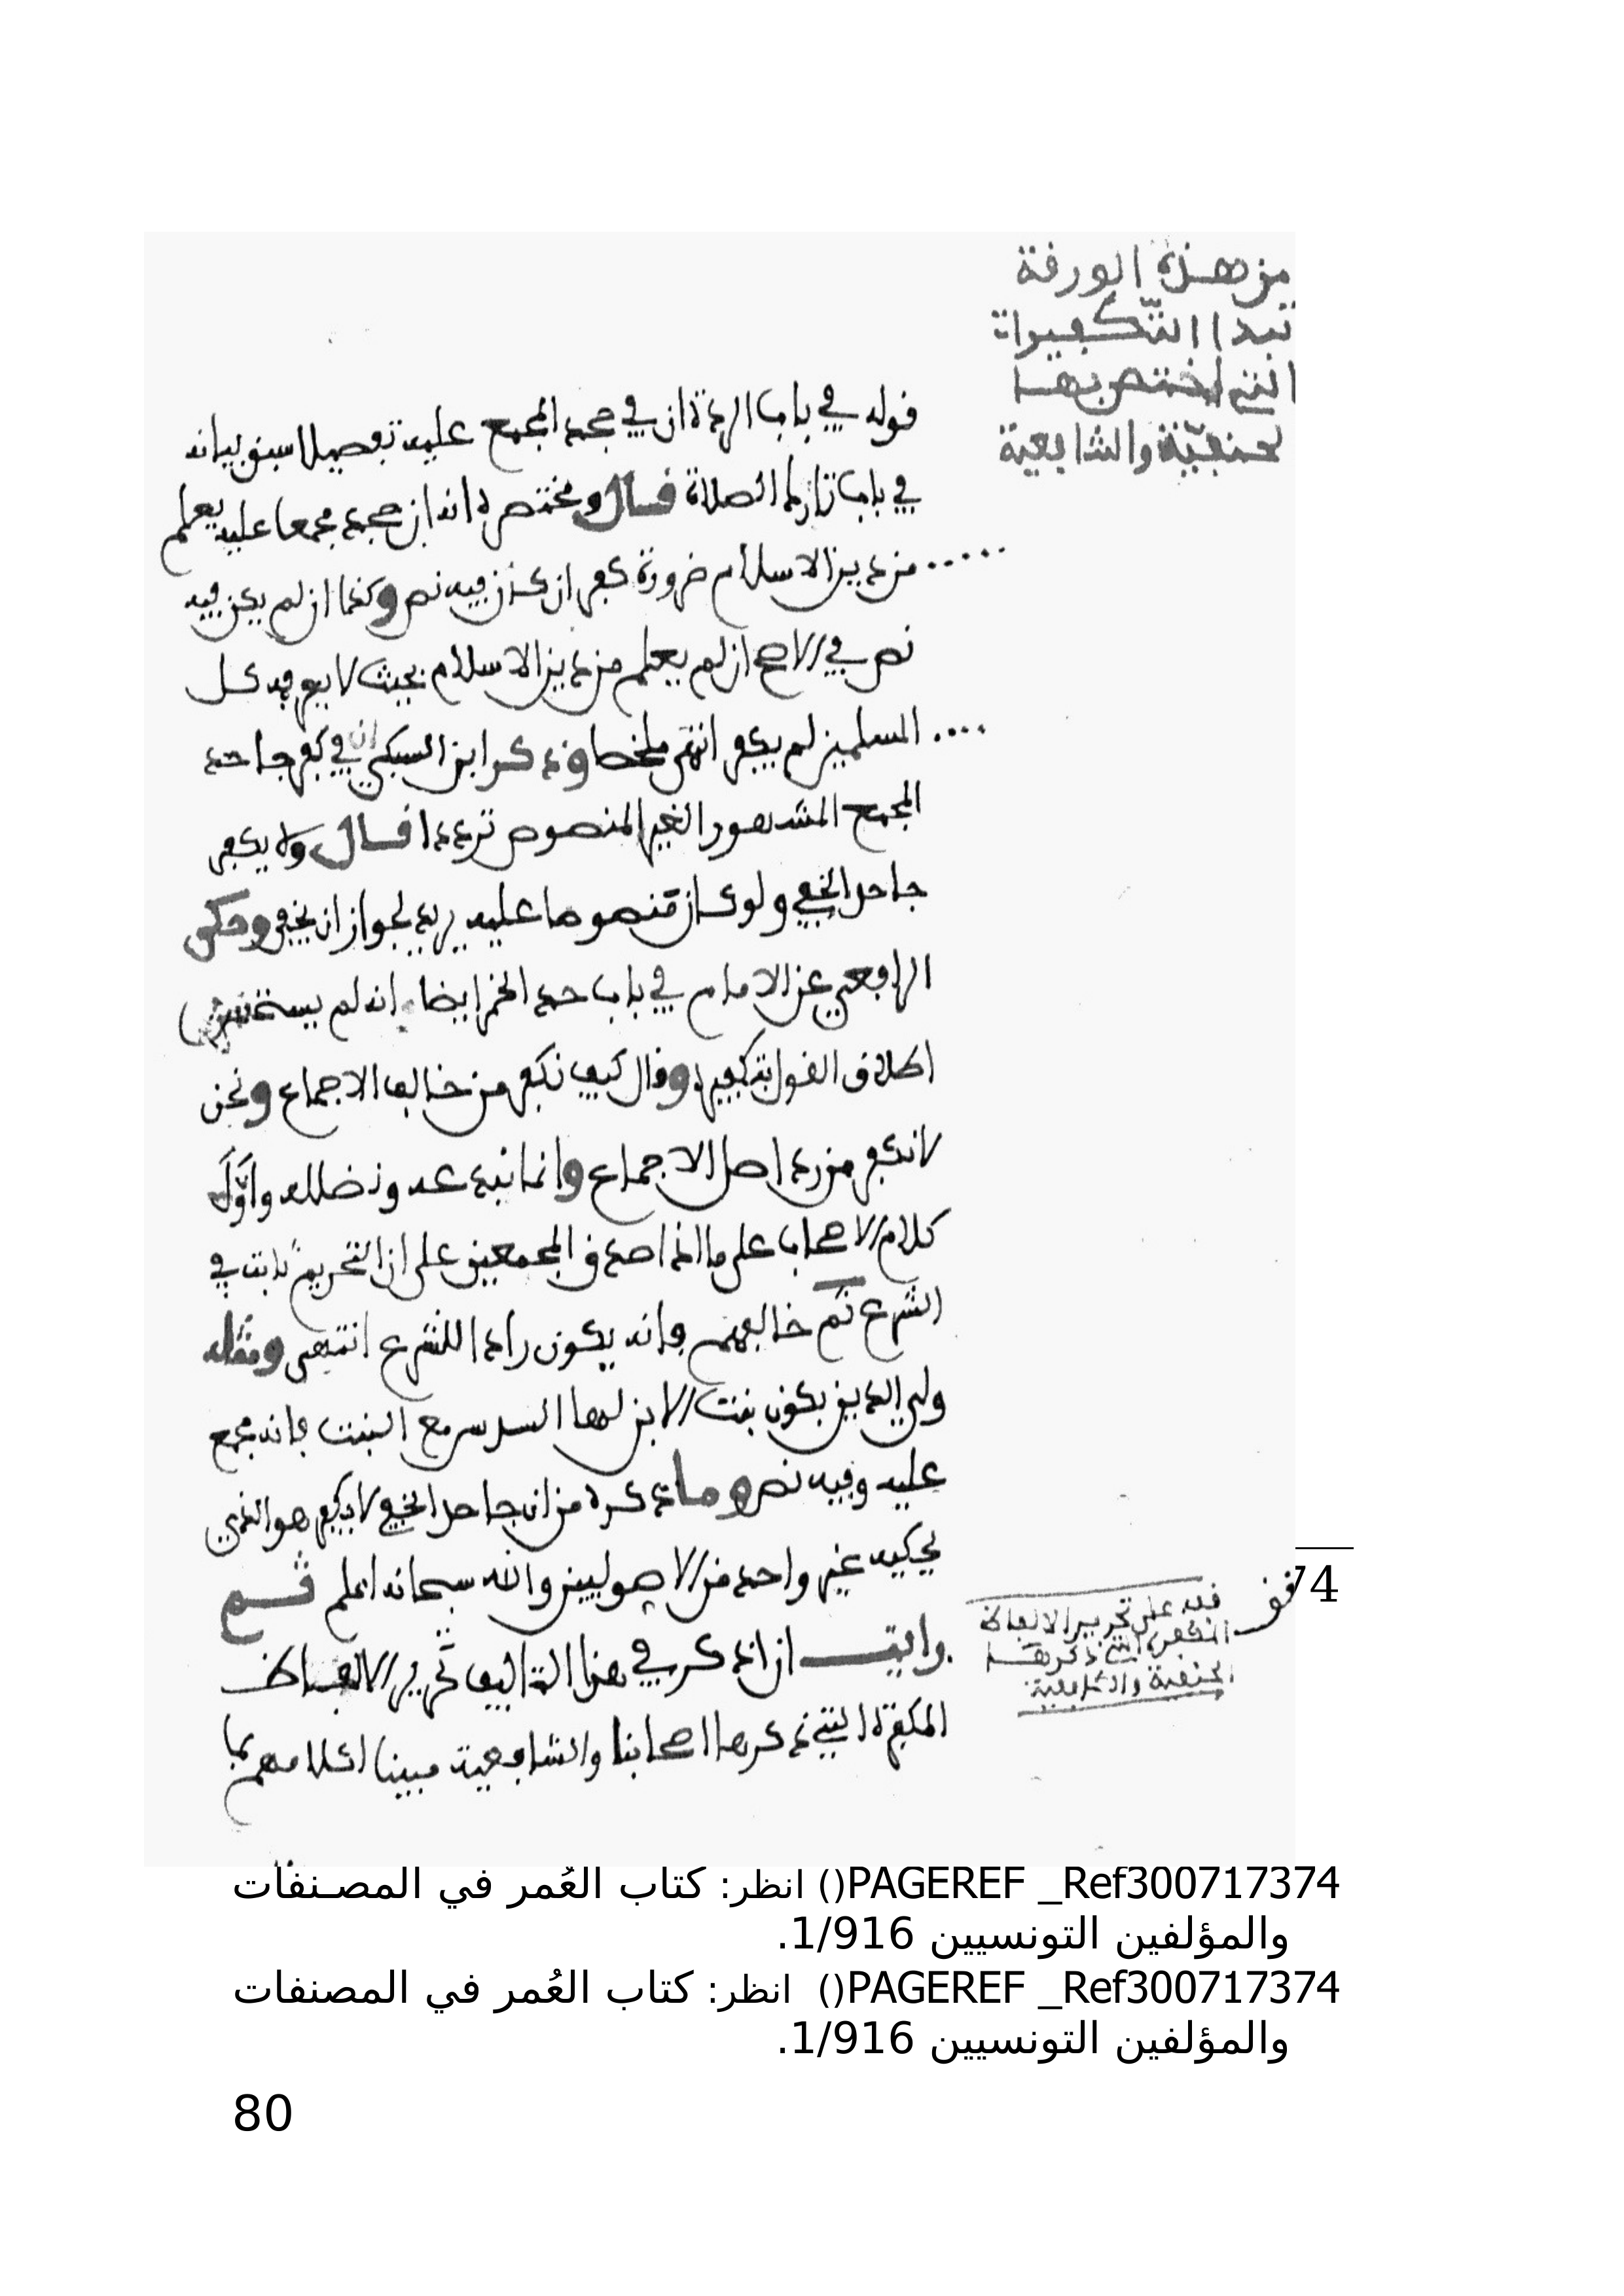 من هذه الورقة
تبدا التكفيرات
التي اختص بها
لحنفية والشافعية
قوله في باب الردة ان في جحد المجمع عليه تفصيلا سبق بيانه
في باب تارك الصلاة قال ومختصره انه ان جحد مجمعا عليه يعلم
من دين الاسلام ضرورة كفر ان كان فيه نص وكذا ان لم يكن فيه
نص في الاصح ان لم يعلم من دين الاسلام بحيث لا يعرفه كل
المسلمين لم يكفر انتهى ملخصا وذكر ابن السبكي ان في كفر جاحد
المجمع المشهور الغير المنصوص ترددا قال ولا يكفر
جاحد الخفي ولو كان منصوصا عليه يريد لجواز ان يخفى وحكى
الرافعي عن الامام في باب حد الخمر ايضا انه لم يستحسن
اطلاق القول بتكفيره وقال كيف نكفر من خالف الاجماع ونحن
لا نكفر من رد اصل الاجماع وانما نبدعه ونضلله واوّل
كلام الاصحاب على ما اذا صدق المجمعين على ان التحريم ثابت في
الشرع ثم خالفهم فانه يكون رادا للشرع انتهى ومثله
ولي الدين بكون بنت الابن لها السدس مع البنت فانه مجمع
عليه وفيه نص وما ذكره من ان جاحد الخفي لا يكفر هو الذي
يحكيه غير واحد من الاصوليين والله سبحانه اعلم ثم
رايت ان اذكر في هذا التاليف تحرير الالفاظ
المكفرة التي ذكرها اصحابنا والشافعية مبينا لكلامهم بما
قف
قف على تحرير الالفاظ
المكفرة التي ذكرها
الحنفية والشافعية
74
PAGEREF _Ref300717374() انظر: كتاب العُمر في المصنفات
والمؤلفين التونسيين 1/916.
PAGEREF _Ref300717374() انظر: كتاب العُمر في المصنفات
والمؤلفين التونسيين 1/916.
80